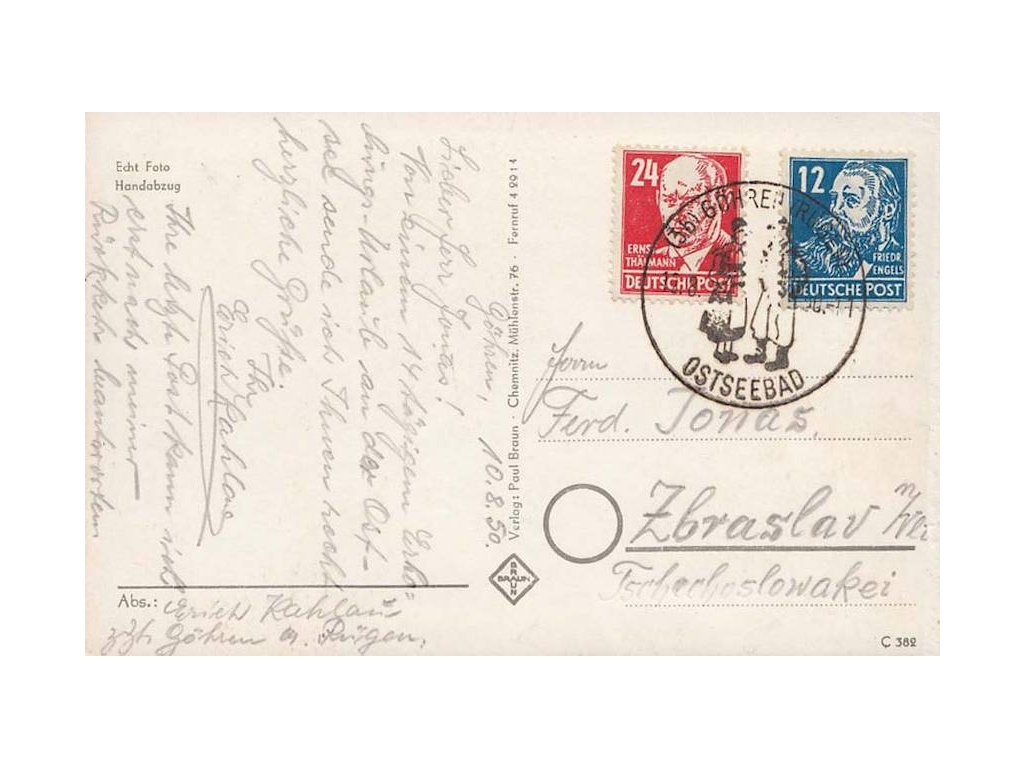 Echt Foto
Handabzug
Göhren, 10.8.50.
Lieber Herr Jonas!
Von einem 14 tägigem Erho=
lungs-Urlaub an der Ost-
see sende ich Ihnen recht
herzliche Grüße.
Ihr
Erich Kahlau
Ihre letzte Post kann ich
erst nach meiner
Rückkehr beantworten
Abs.: Erich Kahlau
zzt. Göhren a. Rügen.
Verlag: Paul Braun · Chemnitz, Mühlenstr. 76 · Fernruf 4 2914
BRAUN
BRAUN
24
ERNST
THÄLMANN
DEUTSCHE POST
12
FRIEDR.
ENGELS
DEUTSCHE POST
GÖHREN (RÜGEN)
OSTSEEBAD
Herrn
Ferd. Jonas,
Zbraslav n/
Tschechoslowakei
C 382